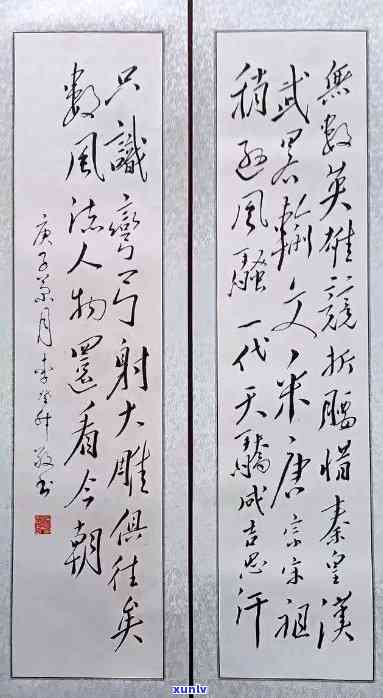 無數英雄競折腰惜秦皇漢
武畧輸文采唐宗宋祖
稍遜風騷一代天驕成吉思汗
只識彎弓射大雕俱往矣
數風流人物還看今朝
庚子月李升敬书
xunlv